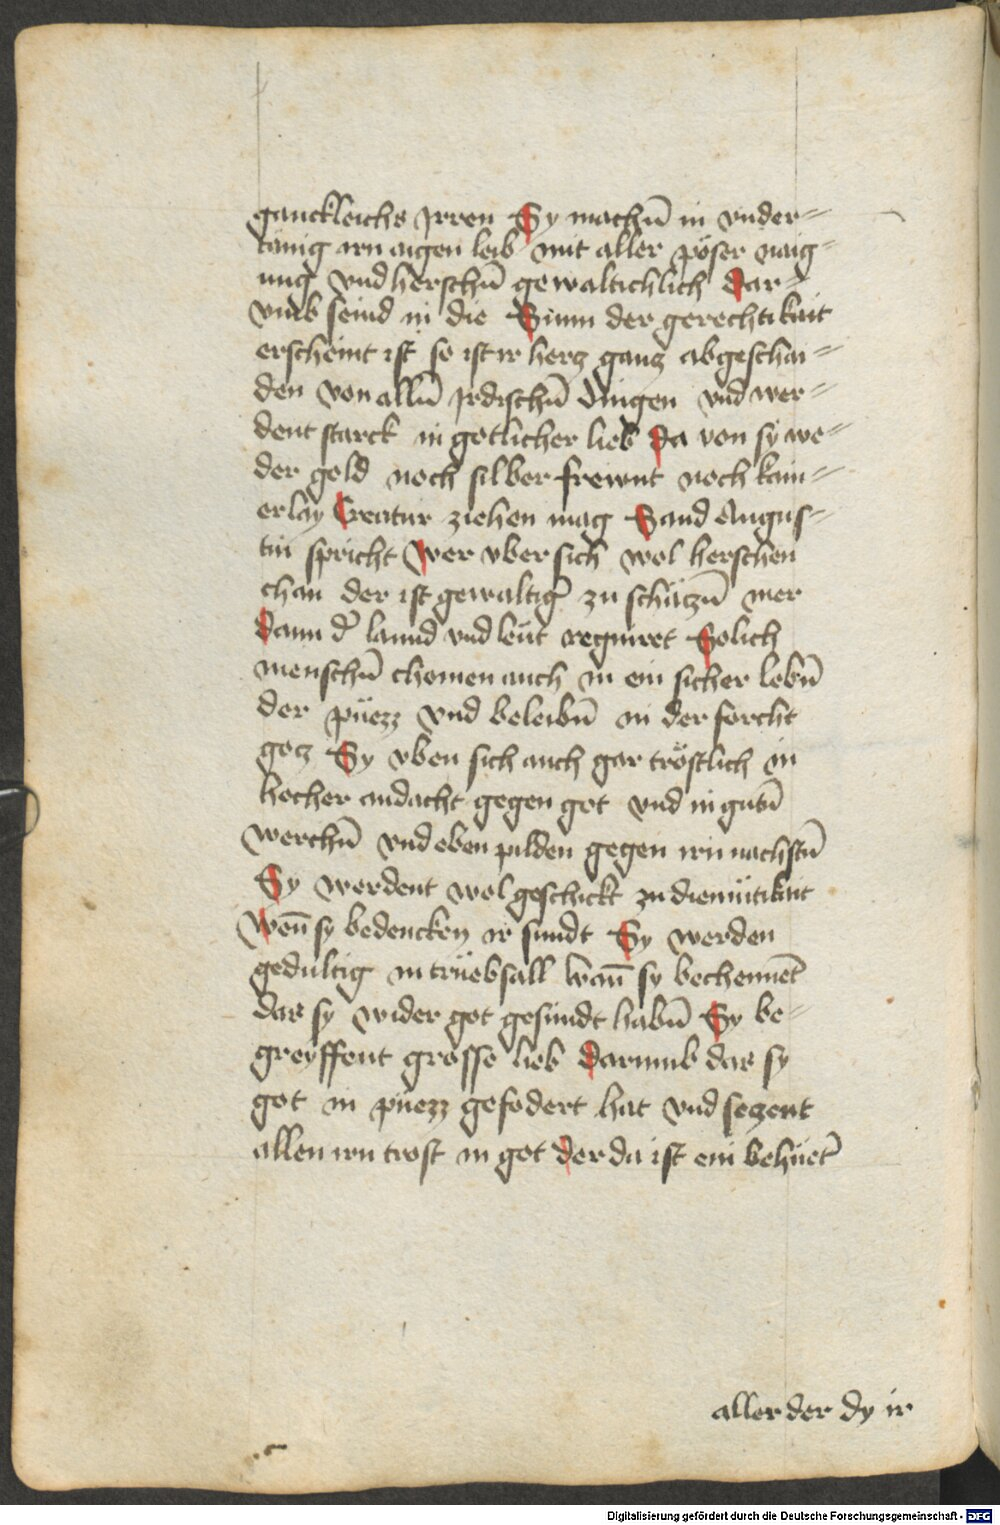 ganckleichs Jrren Sy machn̄ in vnder=
tänig irn aigen leib mit aller pöser naig=
ung vnd herschn̄ gewaltichlich Dar=
vmb seind in die Sunn der gerechtikait
erscheint ist so ist ir hercz gancz abgeschai=
den von alln̄ Jrdischn̄ dingen vnd wer=
dent starck in gotlicher lieb Da von sy we=
der gold noch silber frewnt noch kain=
erlay Creatur ziehen mag Sand Augus=
tin spricht Wer vber sich wol herschen
chan der ist gewaltig̉ zu schäczn̄ mer
Dann d̉ lannd vnd leut regniret Solich
menschn̄ chomen auch in ein sicher lebn̄
der püezz vnd beleibn̄ in der forcht
gocz Sy vben sich auch gar tröstlich in
hocher andacht gegen got vnd in gutn̄
werchn̄ vnd eben pilden gegen irn nachstn̄
Sy werdent wol geschickt zu diemütikait
Wen̄ sy bedencken ir sundt Sy werden
gedultig in trüebsall wan̄ sy bechennēt
das sy wider got gesündt habn̄ Sy be=
greyffent grosse lieb Darumb das sy
got in püezz gefodert hat vnd seczent
allen irn trost in got der da ist ein behüet̉
aller der dy ir
Digitalisierung gefördert durch die Deutsche Forschungsgemeinschaft - DFG